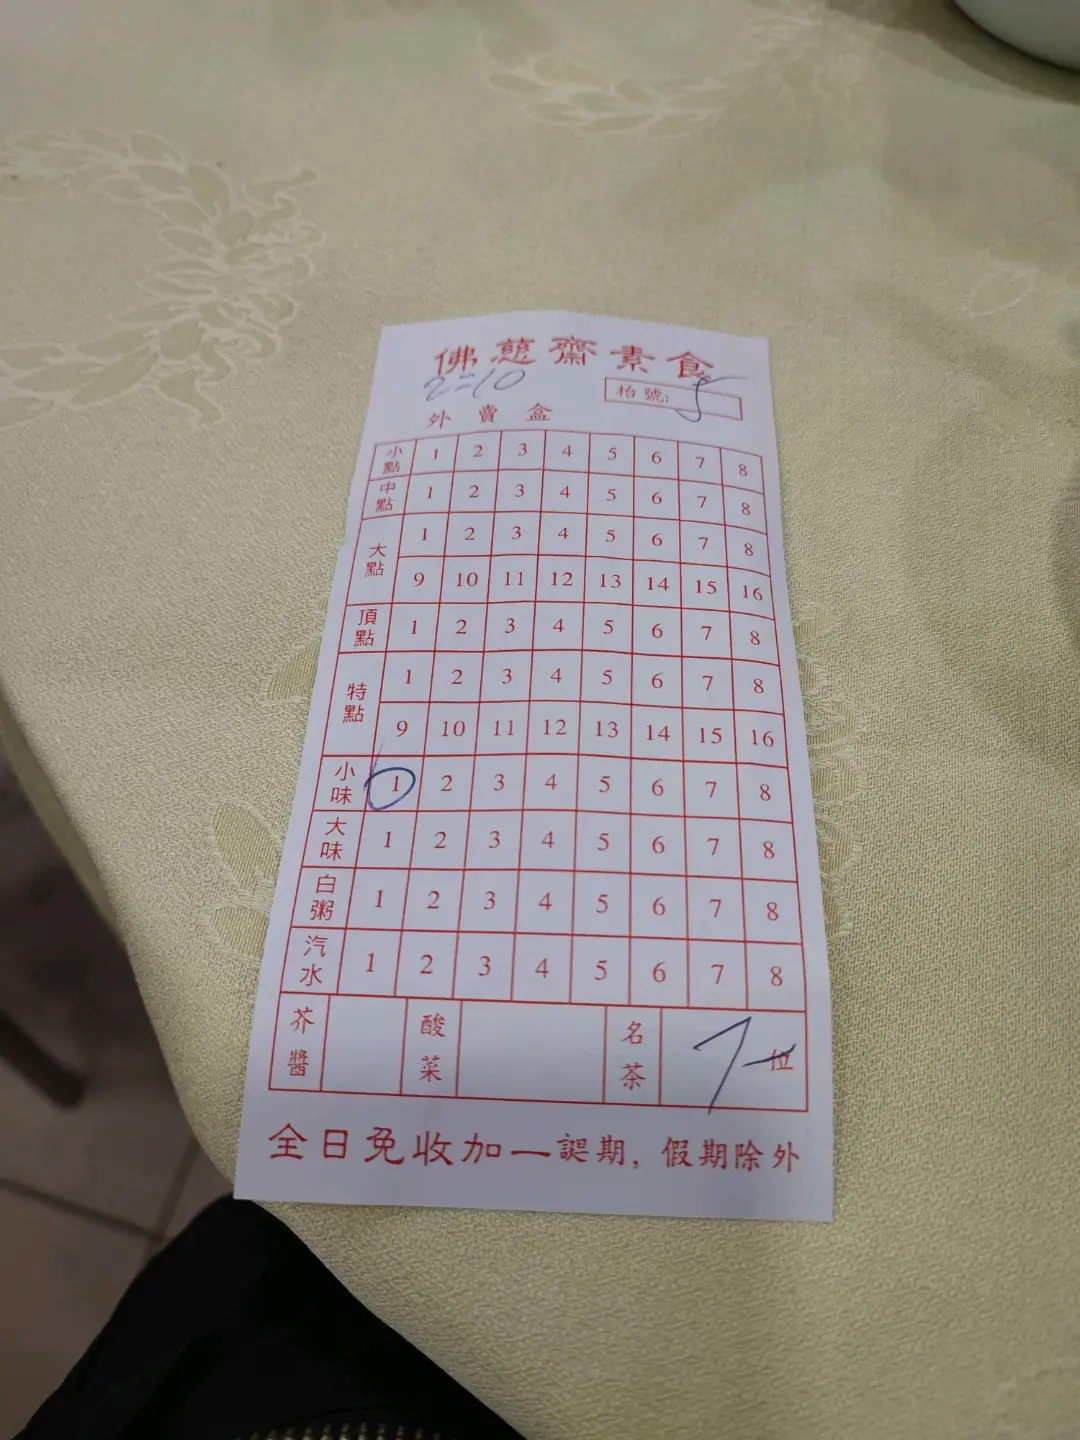 佛慈齋素食
2=10
枱號: 5
外賣盒
小點 1 2 3 4 5 6 7 8
中點 1 2 3 4 5 6 7 8
大點 1 2 3 4 5 6 7 8
9 10 11 12 13 14 15 16
頂點 1 2 3 4 5 6 7 8
特點 1 2 3 4 5 6 7 8
9 10 11 12 13 14 15 16
小味 1 2 3 4 5 6 7 8
大味 1 2 3 4 5 6 7 8
白粥 1 2 3 4 5 6 7 8
汽水 1 2 3 4 5 6 7 8
芥醬 酸菜 名茶 7 位
全日免收加一 誤期, 假期除外